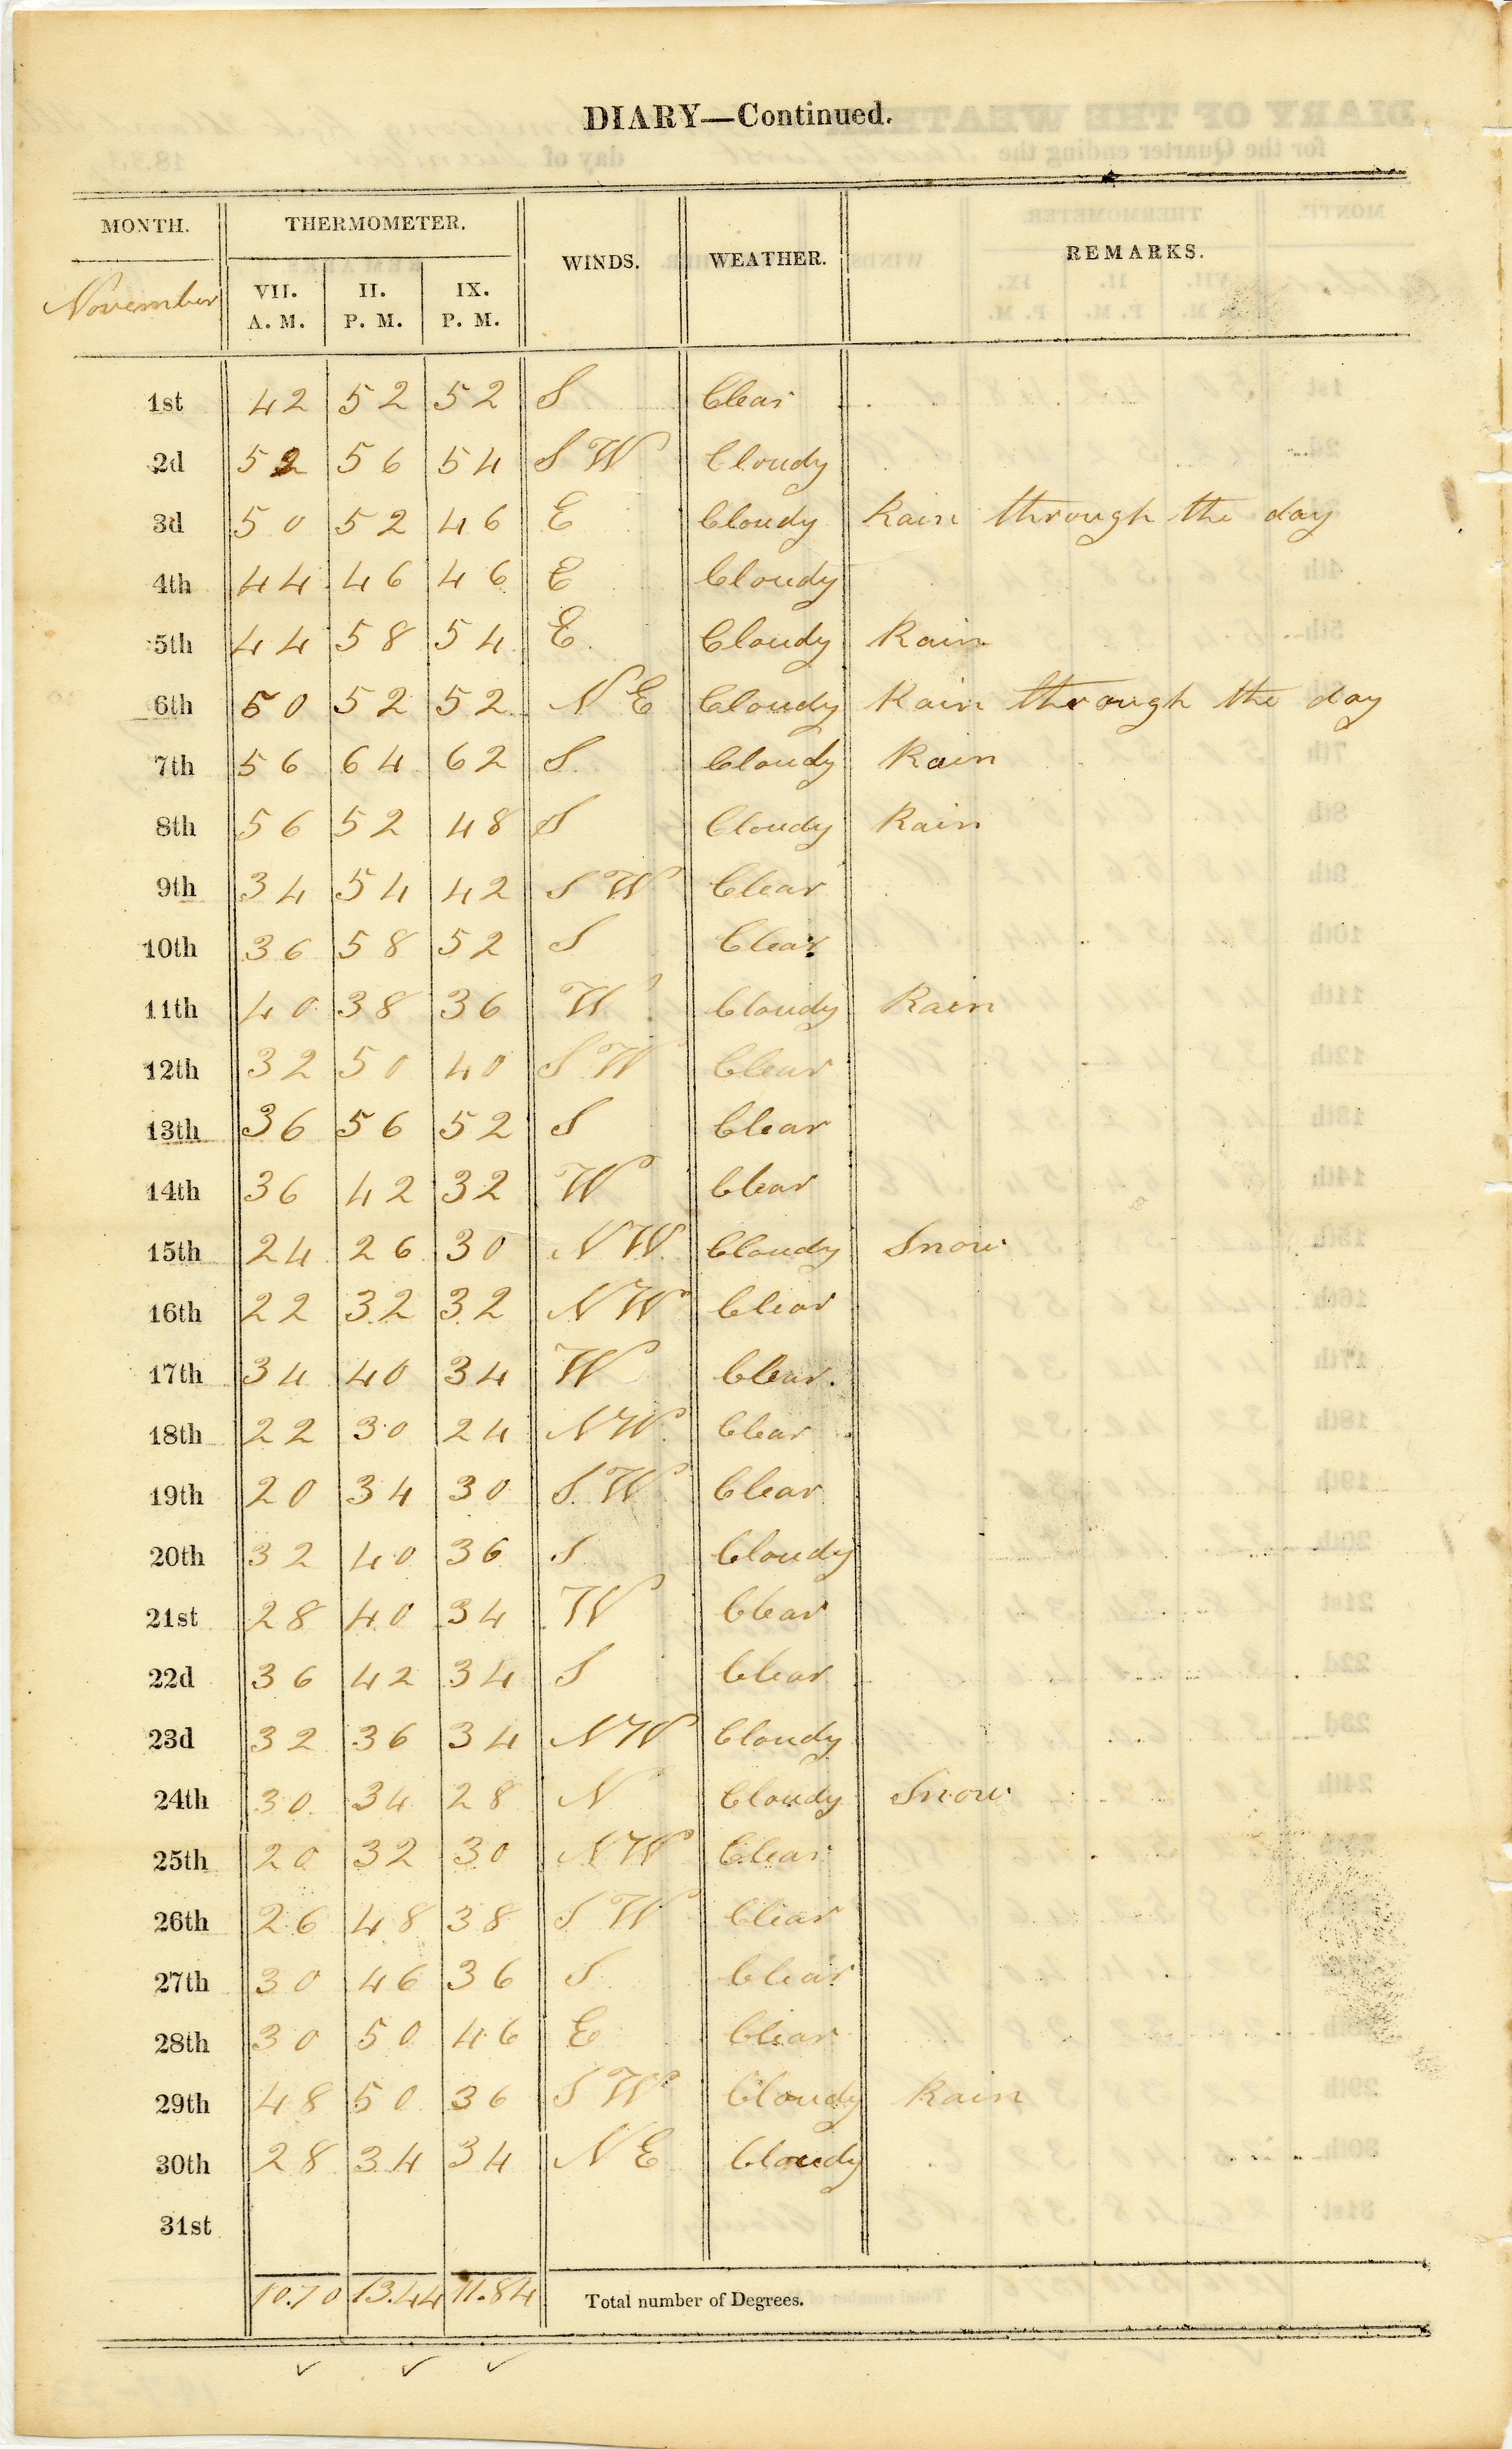 DIARY—Continued.
MONTH. THERMOMETER. WINDS. WEATHER. REMARKS.
November VII. A. M. II. P. M. IX. P. M.
1st 42 52 52 S Clear
2d 52 56 54 S W Cloudy
3d 50 52 46 E Cloudy Rain through the day
4th 44 46 46 E Cloudy
5th 44 58 54 E Cloudy Rain
6th 50 52 52 N E Cloudy Rain through the day
7th 56 64 62 S Cloudy Rain
8th 56 52 48 S Cloudy Rain
9th 34 54 42 S W Clear
10th 36 58 52 S Clear
11th 40 38 36 W Cloudy Rain
12th 32 50 40 S W Clear
13th 36 56 52 S Clear
14th 36 42 32 W Clear
15th 24 26 30 N W Cloudy Snow
16th 22 32 32 N W Clear
17th 34 40 34 W Clear
18th 22 30 24 N W Clear
19th 20 34 30 S W Clear
20th 32 40 36 S Cloudy
21st 28 40 34 W Clear
22d 36 42 34 S Clear
23d 32 36 34 N W Cloudy
24th 30 34 28 N Cloudy Snow
25th 20 32 30 N W Clear
26th 26 48 38 S W Clear
27th 30 46 36 S Clear
28th 30 50 46 E Clear
29th 48 50 36 S W Cloudy Rain
30th 28 34 34 N E Cloudy
31st
10.70 13.44 11.84 Total number of Degrees.